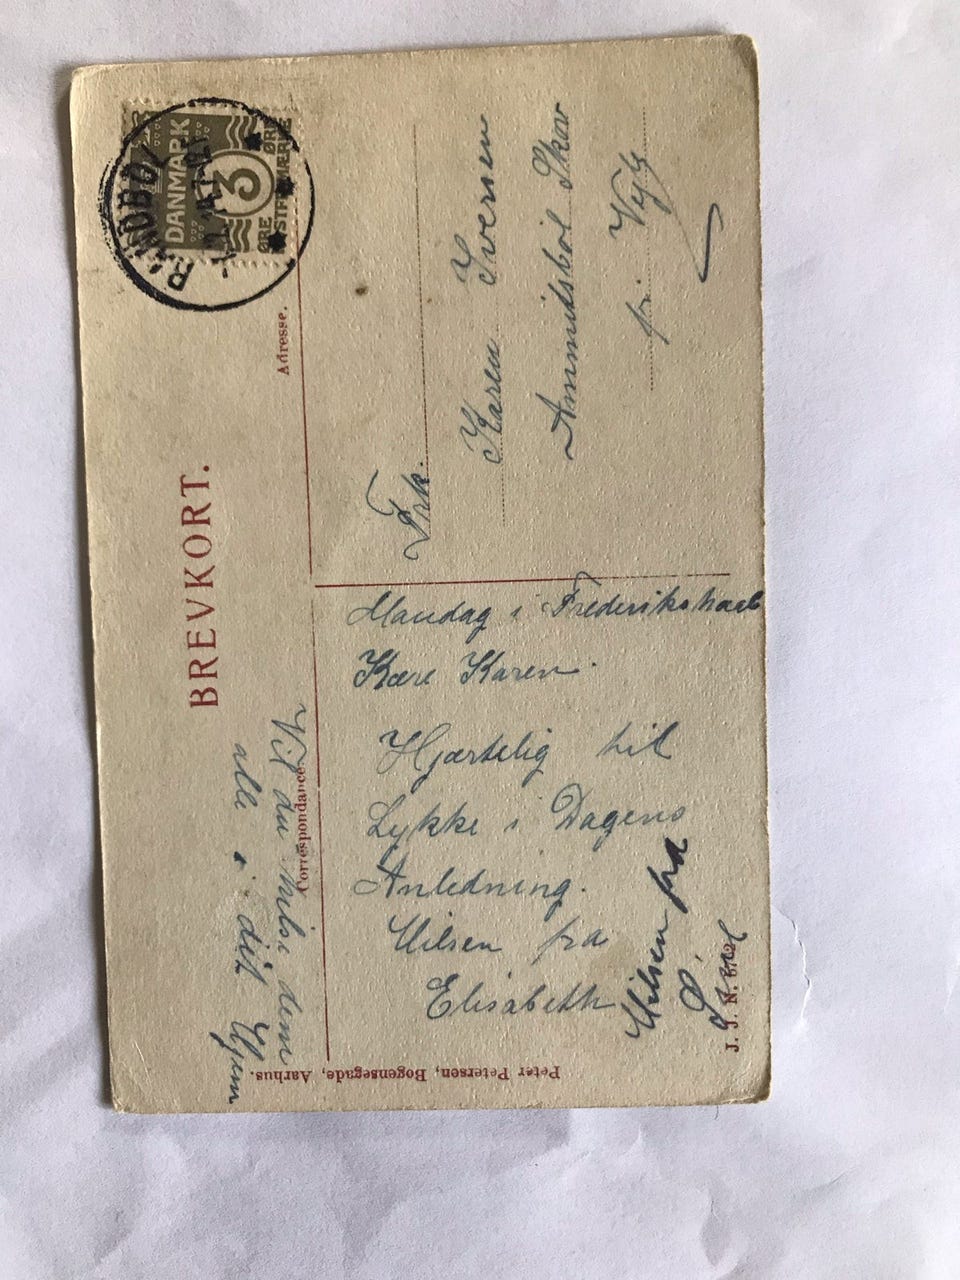 BREVKORT.
Correspondance.
Adresse.
DANMARK
3
ØRE ØRE
RANDBØL
Frk.
Karen Iversen
Ammitsbøl Skov
pr. Vejle
Mandag i Frederikshaab
Kære Karen.
Hjærtelig til
Lykke i Dagens
Anledning.
Hilsen fra
Elisabeth
Hilsen fra
Vil du hilse dem
alle i dit Hjem
Peter Petersen, Bogensegade, Aarhus.
J. J. N.